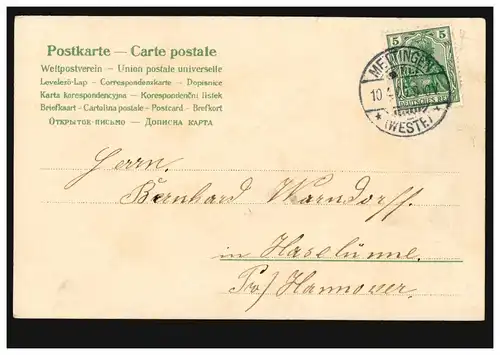 Postkarte — Carte postale
Weltpostverein — Union postale universelle
Levelező-Lap — Correspondenzkarte — Dopisnice
Karta korespondencyjna — Korespondenční lístek
Briefkaart — Cartolina postale — Postcard — Brefkort
Открытое письмо — Дописна карта
5 5
METTINGEN
10
DEUTSCHES REICH
* (WESTF.) *
Herrn
Bernhard Warndorff.
in Haselünne.
Prov Hannover.